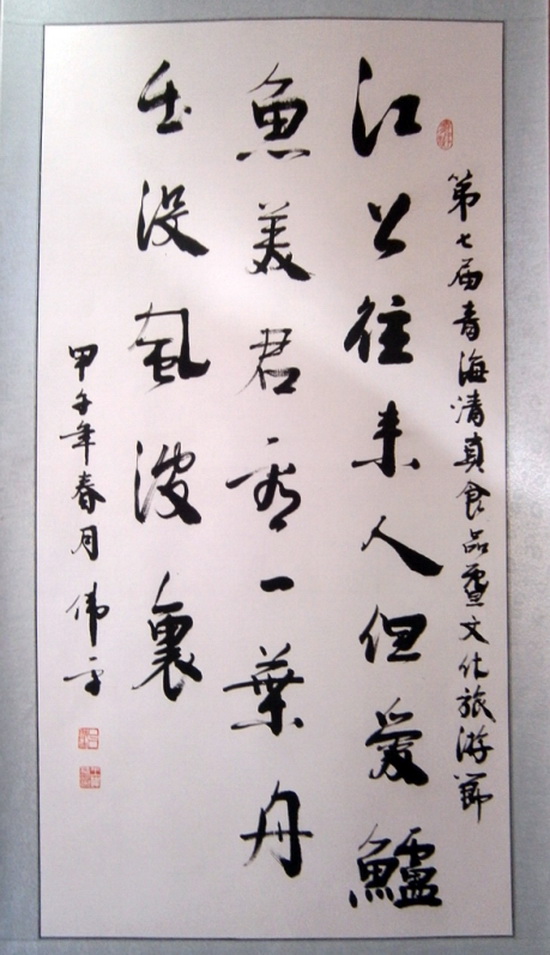 第七届青海清真食品暨文化旅游節
江上往来人但愛鱸
魚美君看一葉舟
出没風波裏
甲午年春月伟平